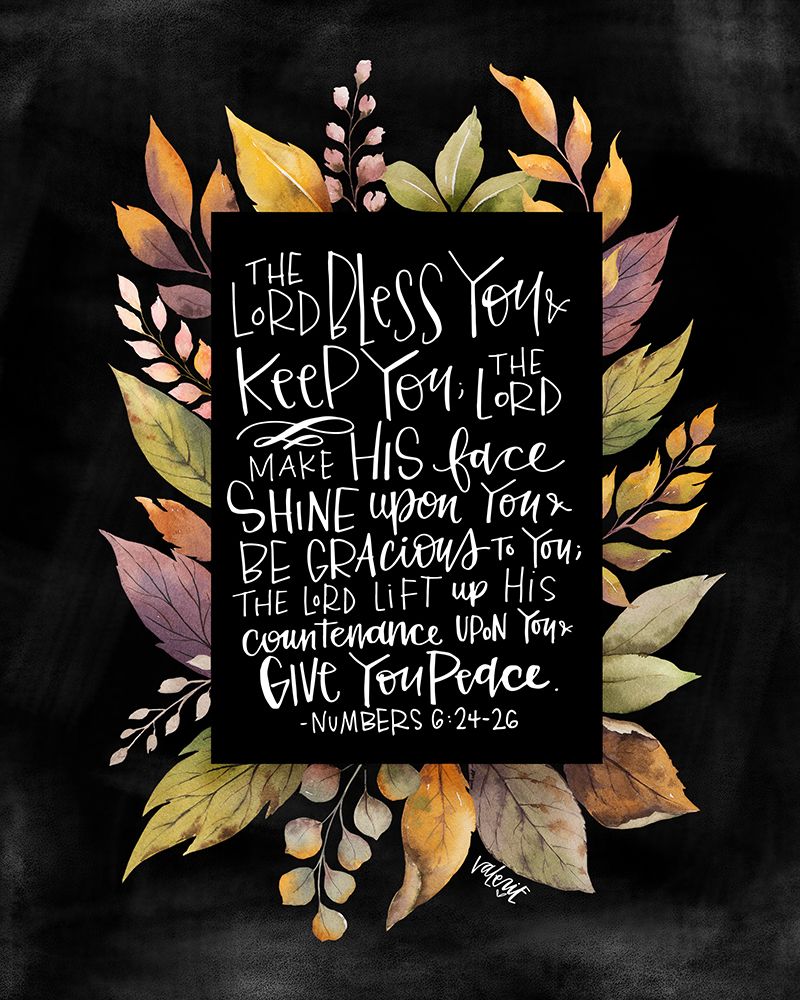 THE
LORD BLESS YOU &
KEEP YOU; THE LORD
MAKE HIS face
SHINE upon YOU &
BE GRACIOUS TO YOU;
THE LORD LIFT up HIS
countenance UPON YOU &
GIVE YOU PEACE.
-NUMBERS 6:24-26
Valerie